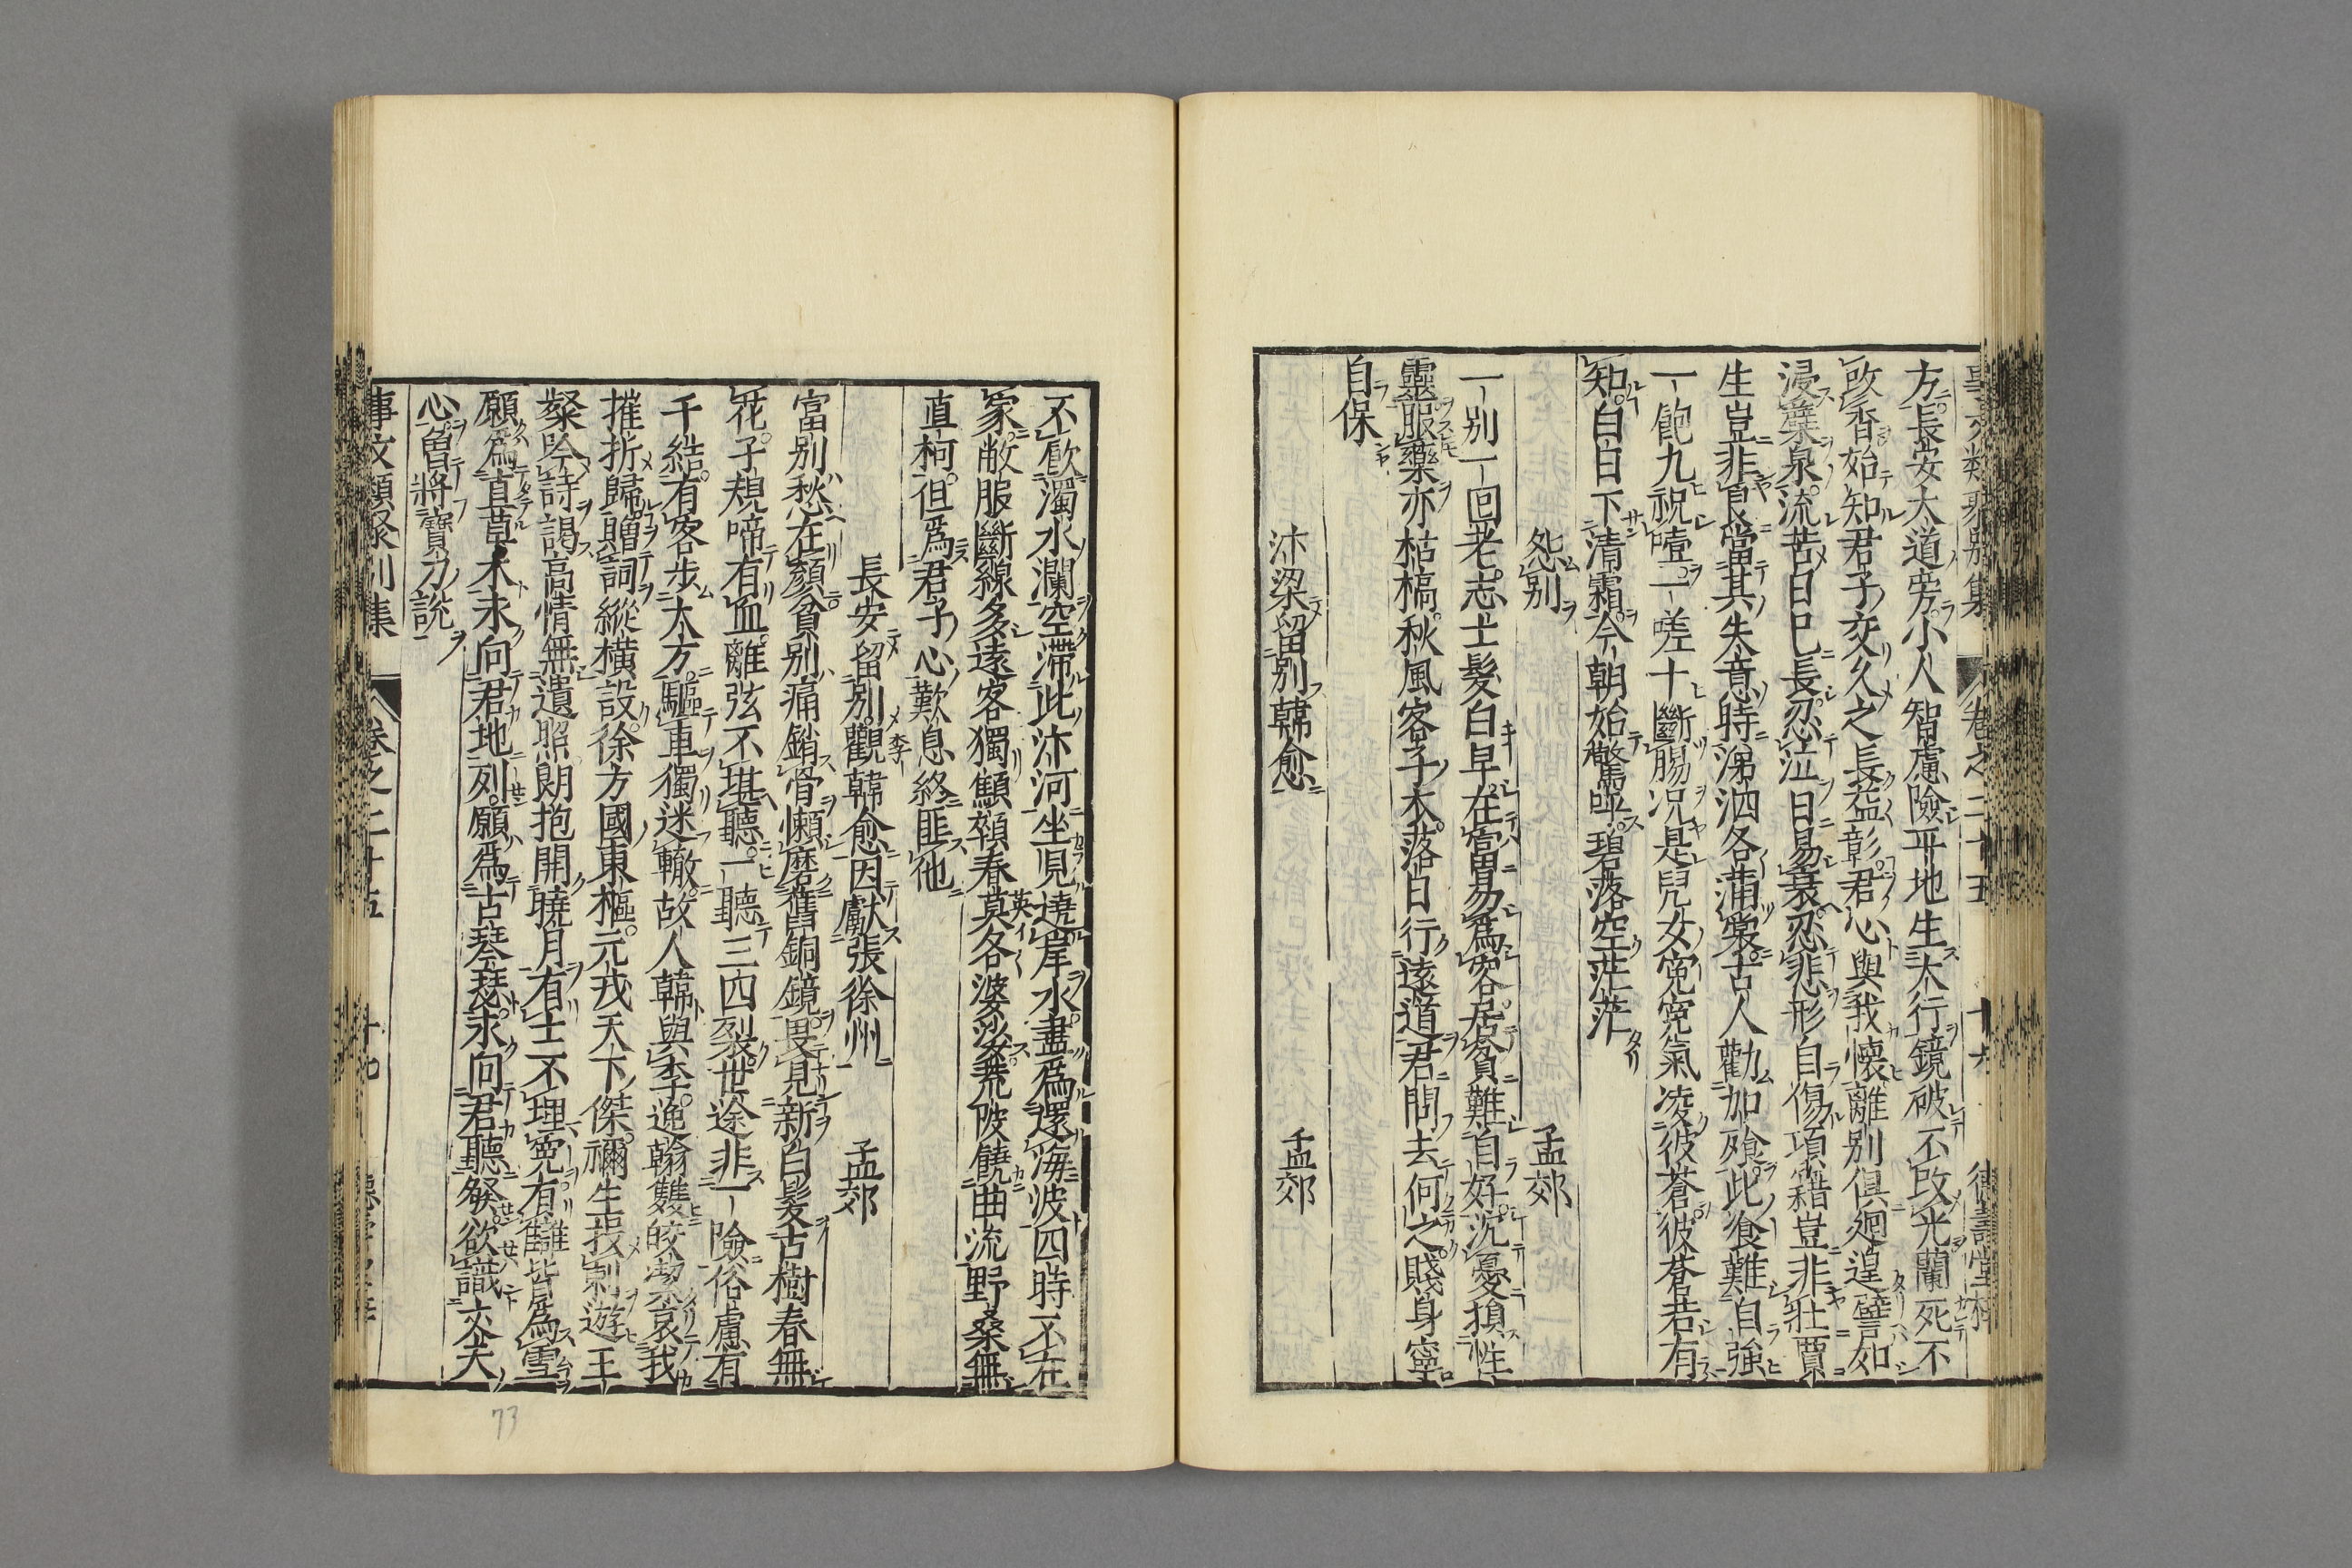 事文類聚別集 卷之二十五 十六 德壽堂梓
方長安大道旁小人智慮險平地生太行鏡破不改光蘭死不
改香始知君子交久之長益彰君心與我懷離別俱迴遑譬如
浸蘗泉流苦日已長忍泣日易衰忍悲形自傷項籍豈非壯賈
生豈非良當其失意時涕泗各沾裳古人勸加飱此飱難自強
一飽九祝噎一嗟十斷腸况是兒女寃寃氣凌彼蒼彼蒼若有
知白日下清霜今朝始驚呼碧落空茫茫
怨別 孟郊
一別一回老志士髮白早在富易爲客居貧難自好沉憂損性
靈服藥亦枯槁秋風客子衣落日行遠道君問去何之賤身寧
自保
汴梁留別韓愈 孟郊
不飮濁水瀾空滯此汴河坐見遶岸水盡爲還海波四時不在
家敝服斷線多遠客獨顦顇春莫各婆娑荒陂饒曲流野桑無
直柯但爲君子心歎息終匪他
長安留別觀韓愈因獻張徐州 孟郊
富別愁在顏貧別痛銷骨懶磨舊銅鏡畏見新白髮古樹春無
花子規啼有血離弦不堪聽一聽三四裂世途非一險俗慮有
千結有客步太方驅車獨迷轍故人韓與李逸翰雙皎潔哀我
摧折歸贈詞縱橫設徐方國東樞元戎天下傑禰生投剌遊王
粲吟詩謁高情無遺照朗抱開曉月有土不埋寃有讎皆爲雪
願爲直草木永向君地列願爲古琴瑟永向君聽發欲識丈夫
心曾將寶刀說
事文類聚別集 卷之二十五